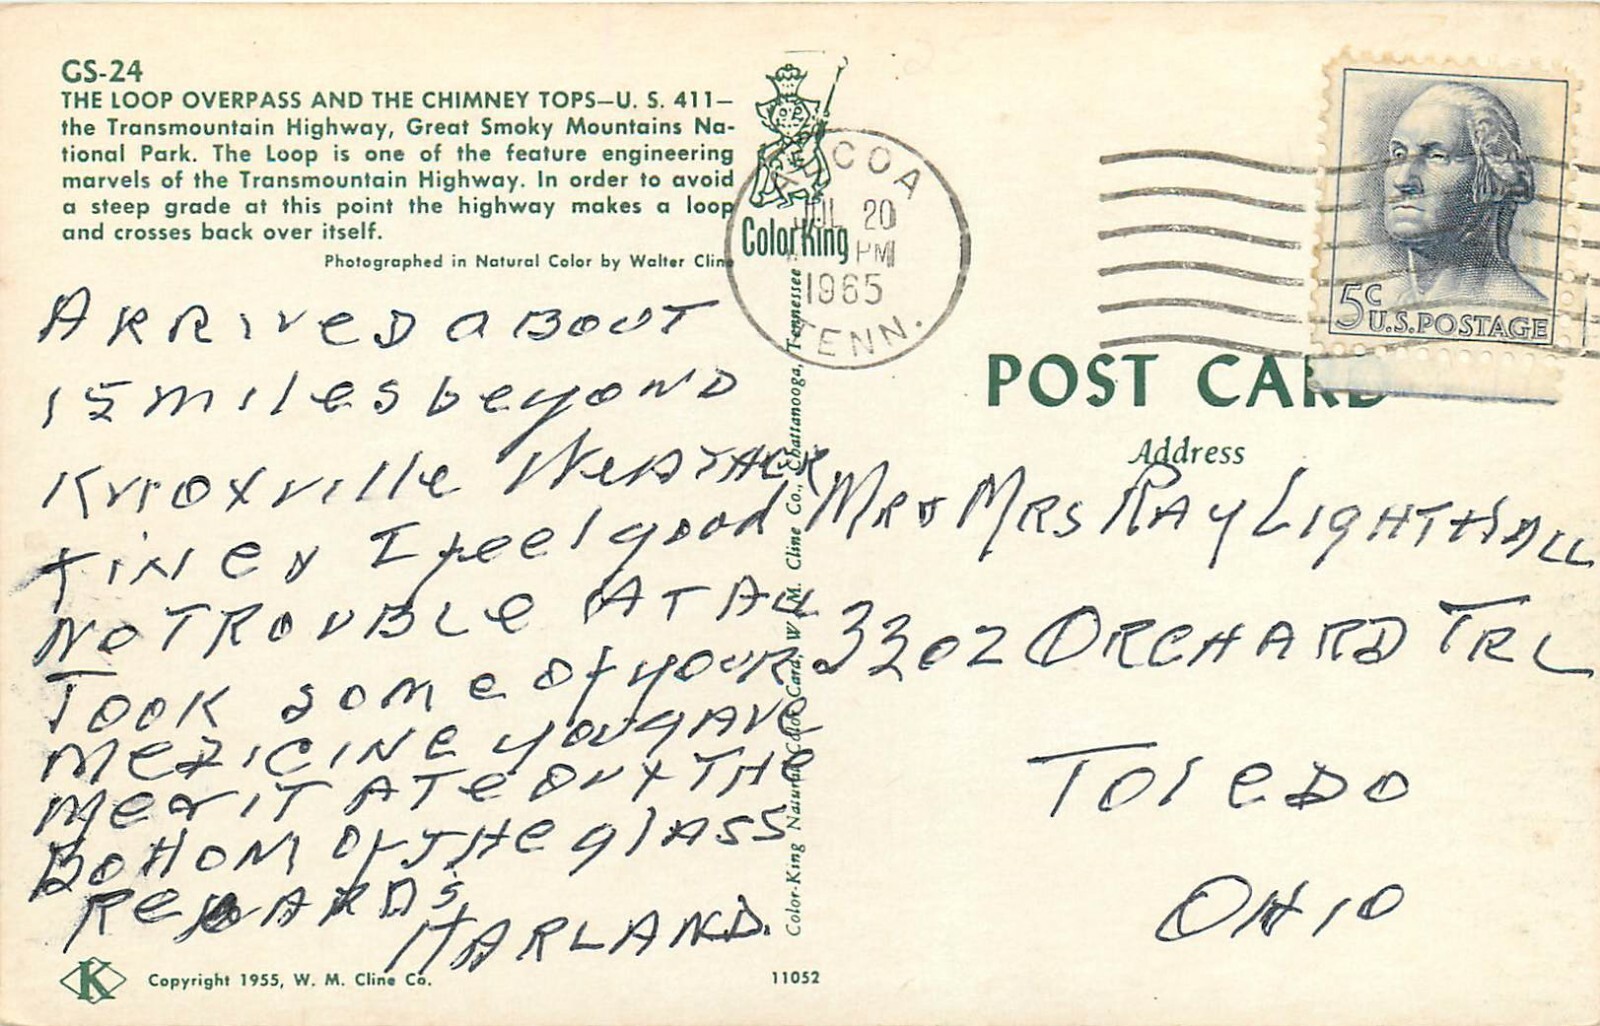 GS-24
THE LOOP OVERPASS AND THE CHIMNEY TOPS—U. S. 411—
the Transmountain Highway, Great Smoky Mountains Na-
tional Park. The Loop is one of the feature engineering
marvels of the Transmountain Highway. In order to avoid
a steep grade at this point the highway makes a loop
and crosses back over itself.
Photographed in Natural Color by Walter Cline
ARRIVED ABOUT
15 miles beyond
Knoxville
I feel good
NO TROUBLE AT ALL
TOOK some of your
MEDICINE you gAVE
me IT ATE OUT THE
BOTTOM OF THE glASS
REGARDS
HARLAND.
Copyright 1955, W. M. Cline Co.
11052
ColorKing
Color-King Natural Color Card, W. M. Cline Co., Chattanooga, Tennessee
ALCOA
JUL 20
PM
1965
TENN.
5c
U.S. POSTAGE
POST CARD
Address
MR & MRS RAY LIGHTHALL
3302 ORCHARD TRL
TOlEDO
OHIO
K